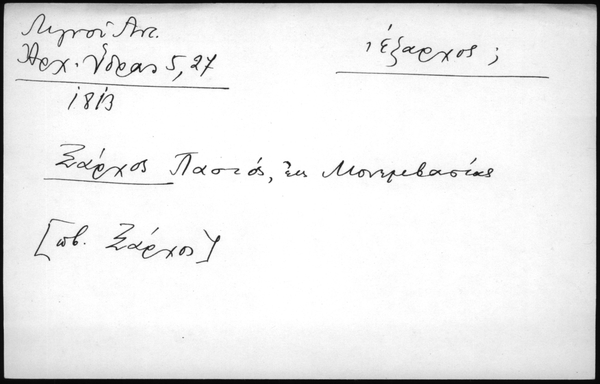 Λιγνοῦ Ἀντ.
Ἀρχ. Ὕδρας 5, 27
1813
ἔξαρχος;
Ξάρχος Παστός, ἐκ Μονεμβασίας
[πβ. Ξάρχος]